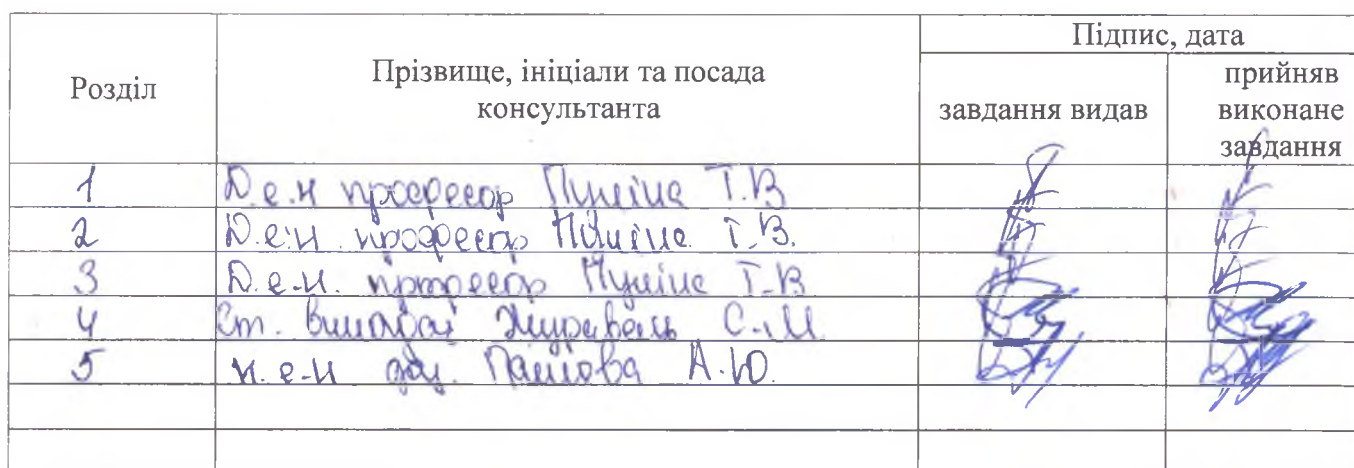 Розділ
Прізвище, ініціали та посада
консультанта
Підпис, дата
завдання видав
прийняв
виконане
завдання
1 Д.е.н професор Пуліна Т.В
2 Д.е.н. професор Пуліна Т.В.
3 Д.е.н. професор Пуліна Т.В
4 Ст. викладач Журавель С.М
5 к.е.н доц. А.Ю.